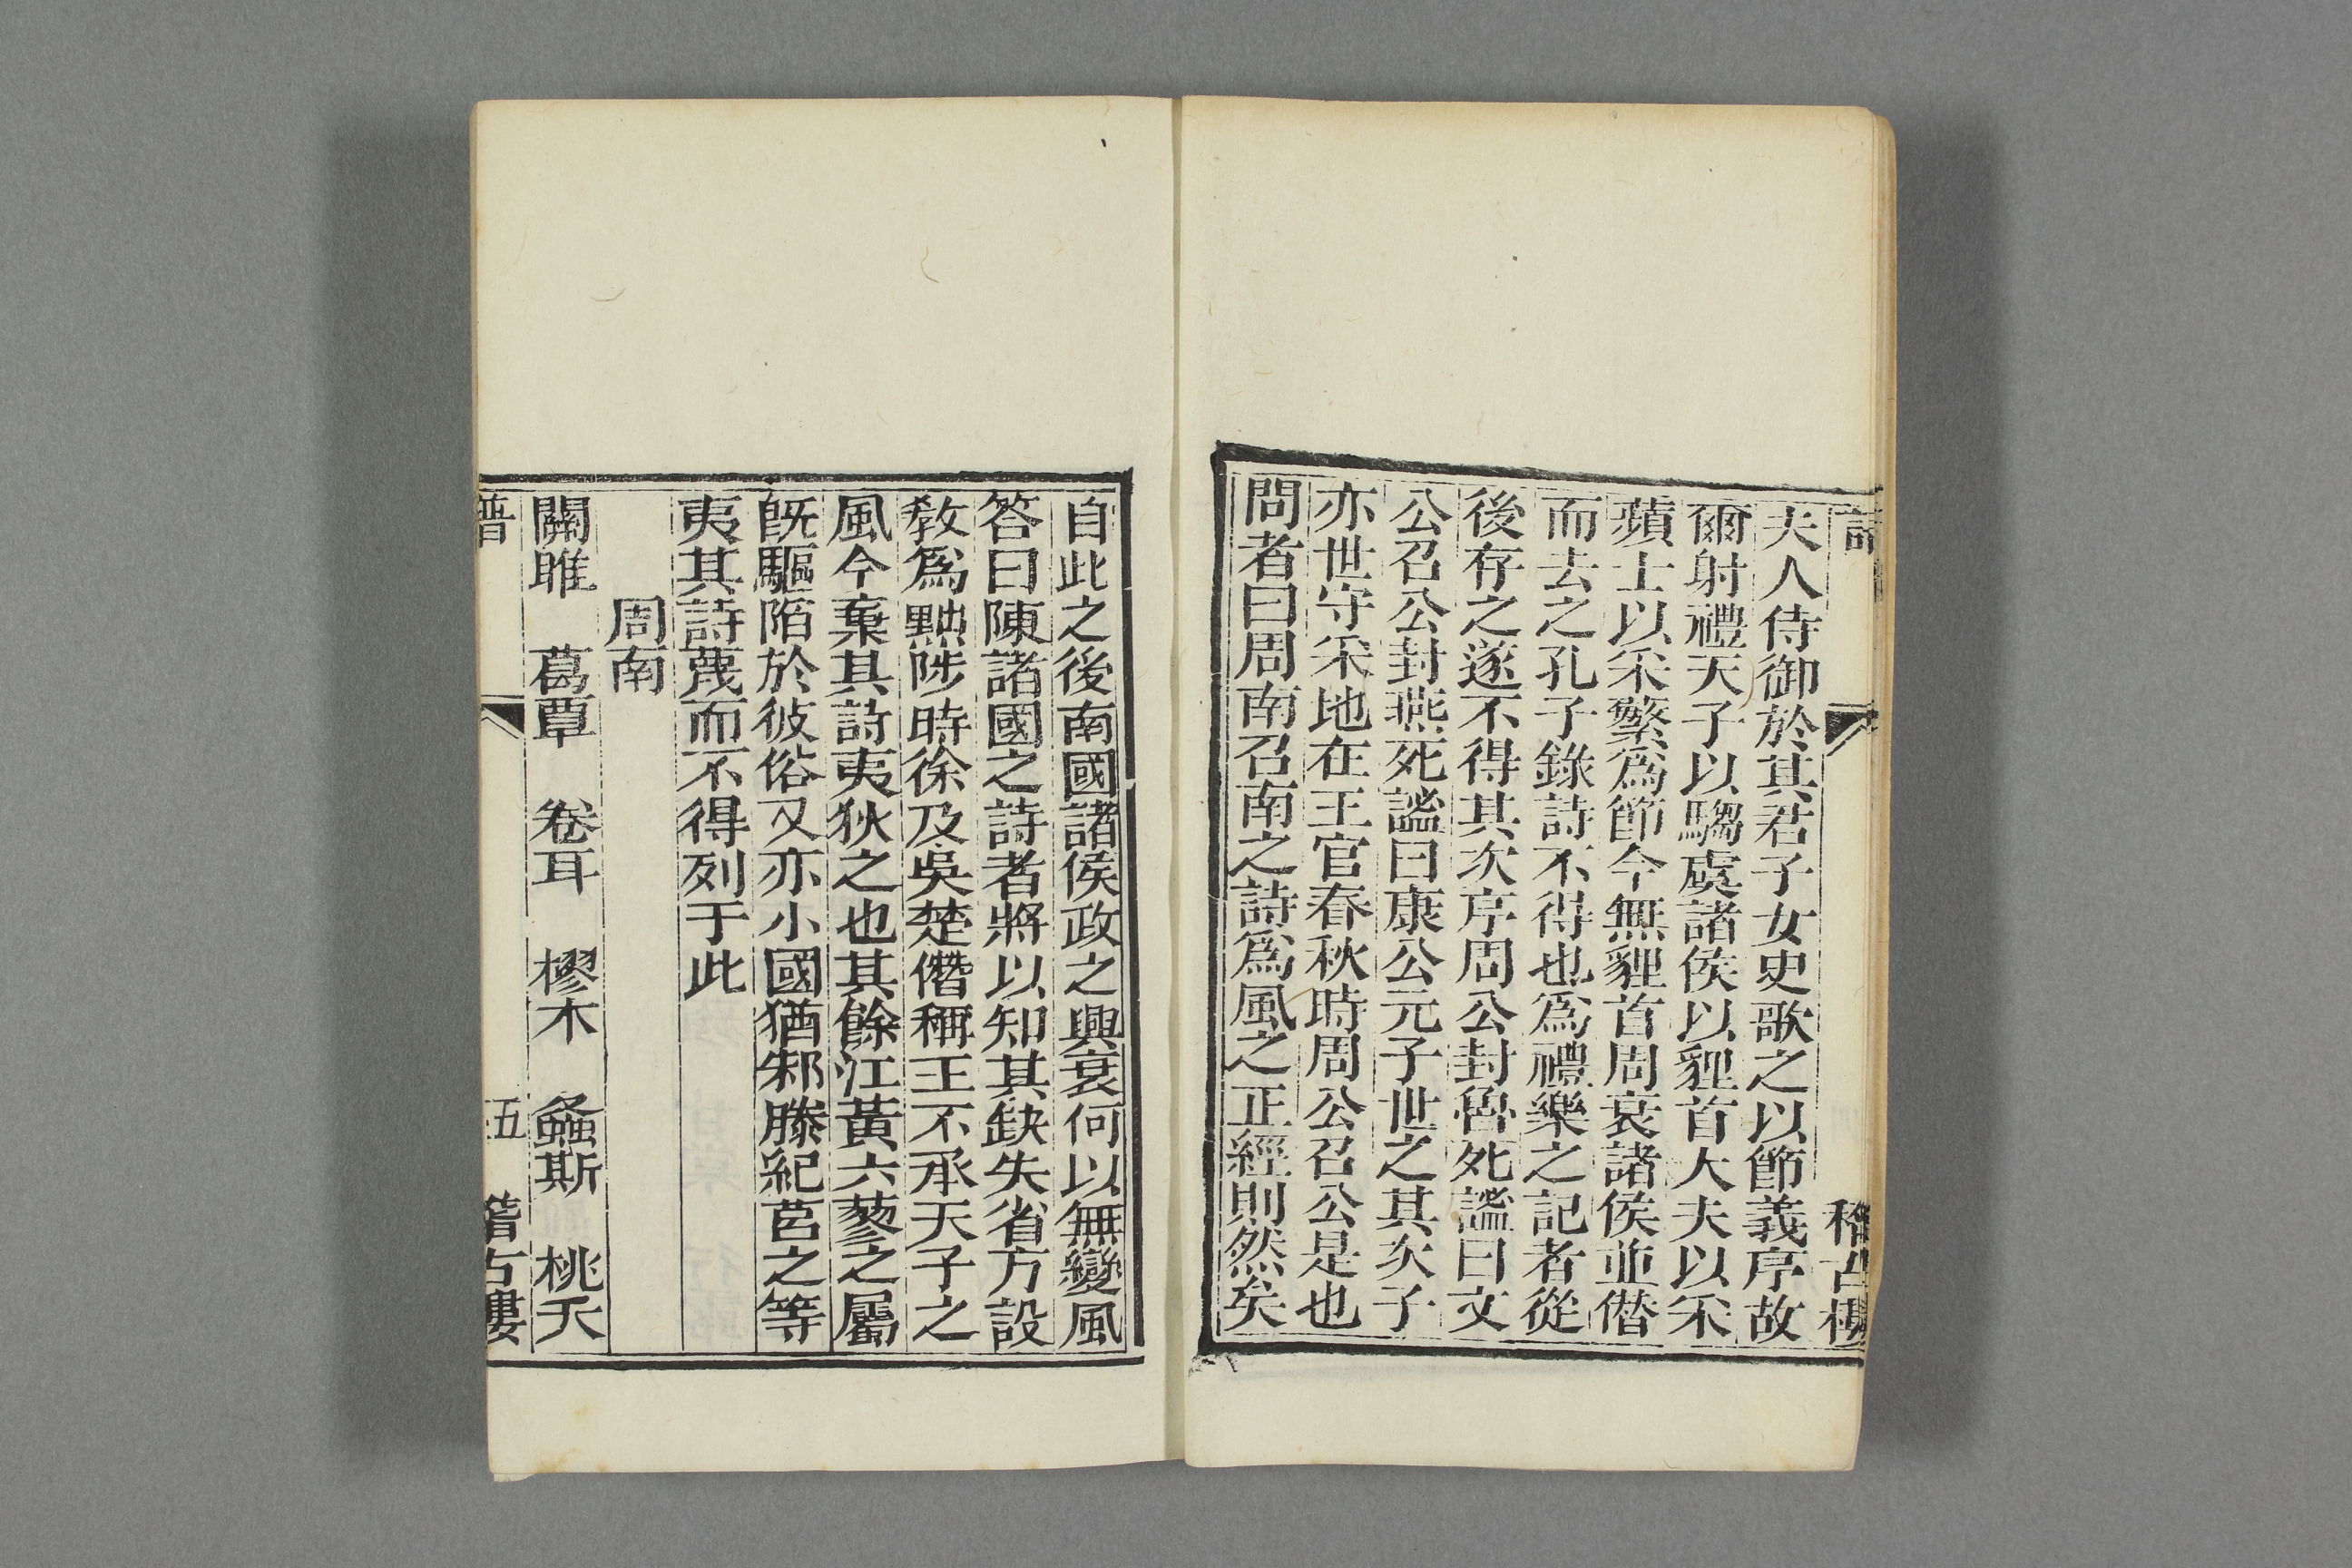 夫人侍御於其君子女史歌之以節義序故
爾射禮天子以騶虞諸侯以貍首大夫以采
蘋士以采蘩爲節今無貍首周衰諸侯並僣
而去之孔子錄詩不得也爲禮樂之記者從
後存之遂不得其次序周公封魯死謚曰文
公召公封燕死謚曰康公元子世之其次子
亦世守采地在王官春秋時周公召公是也
問者曰周南召南之詩爲風之正經則然矣
自此之後南國諸侯政之興衰何以無變風
答曰陳諸國之詩者將以知其缺失省方設
教爲黜陟時徐及吳楚僭稱王不承天子之
風今棄其詩夷狄之也其餘江黃六蓼之屬
旣驅陷於彼俗又亦小國猶邾滕紀莒之等
夷其詩蔑而不得列于此
周南
關雎　葛覃　卷耳　樛木　螽斯　桃夭
譜　五　稽古樓